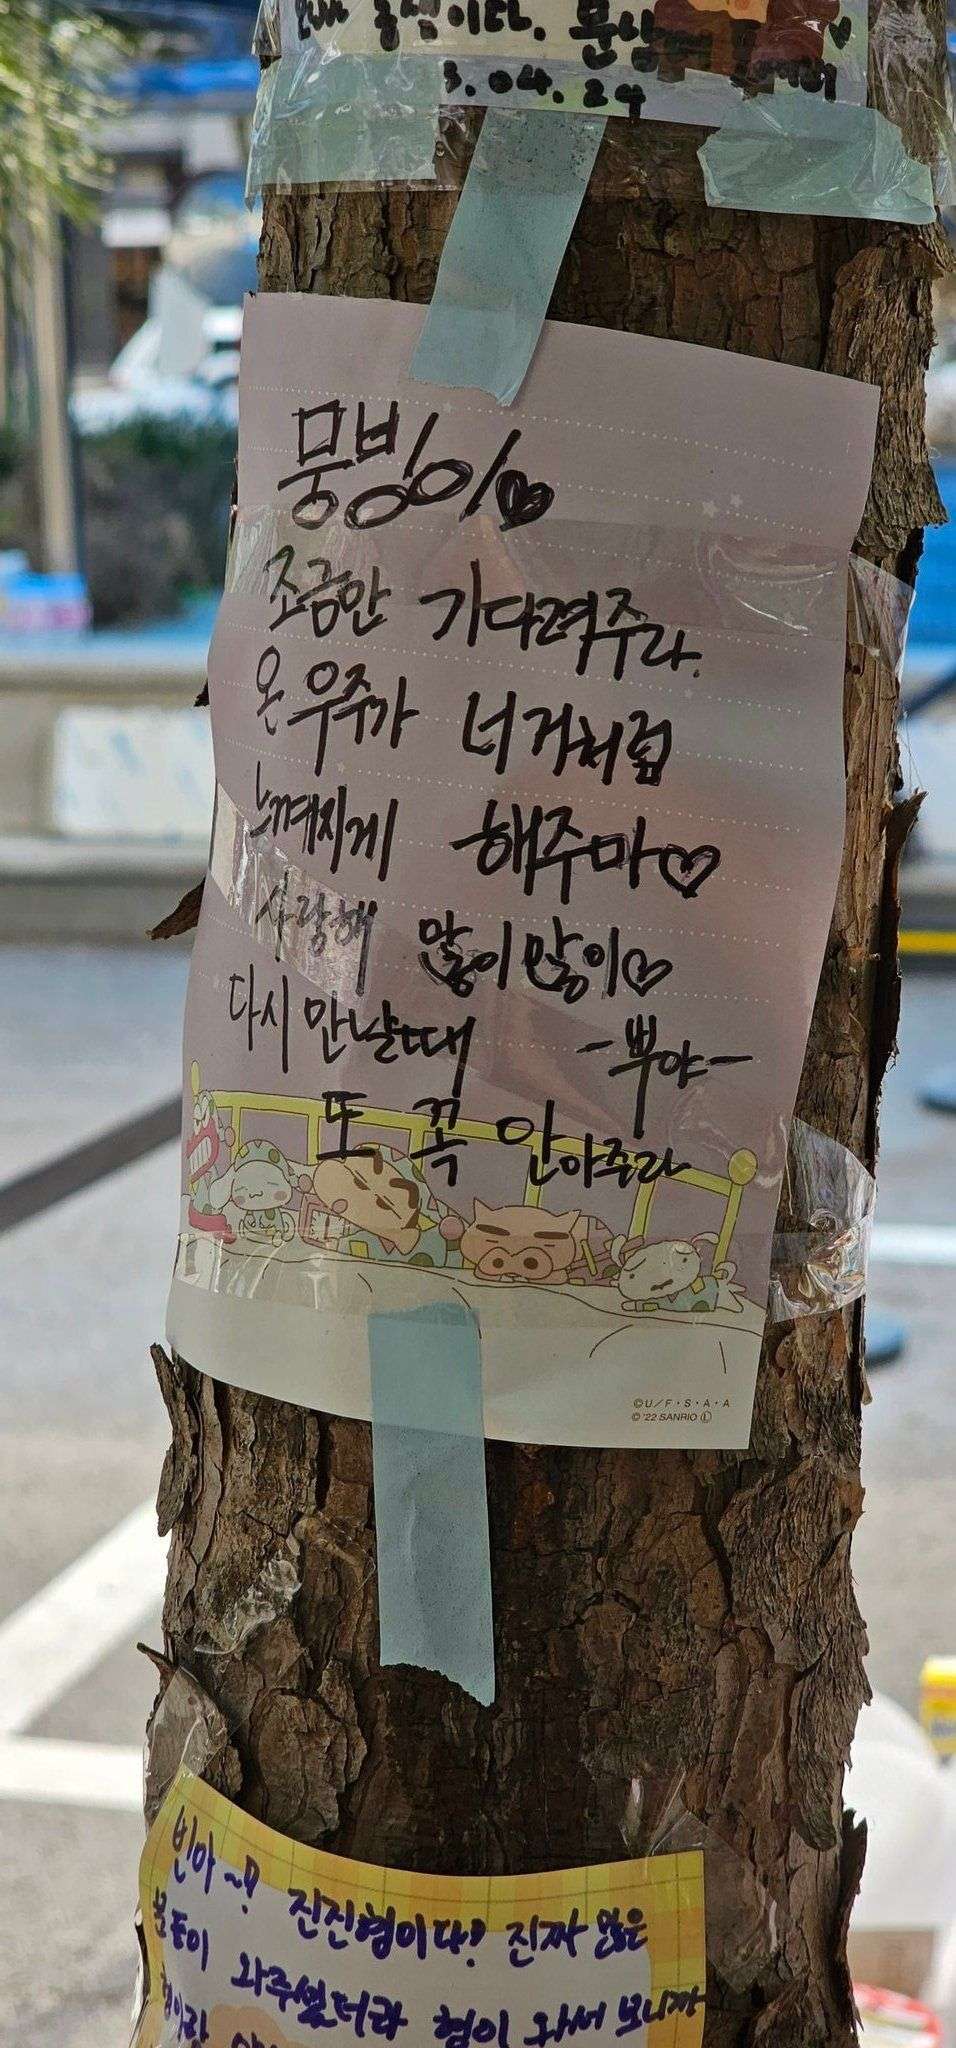 3.04.24
뭉빙이♡
조금만 기다려주라.
온 우주가 너 거처럼
느껴지게 해주마♡
사랑해 많이많이♡
다시 만날때 -뿌야-
또 꼭 안아주라
©U/F・S・A・A
© '22 SANRIO Ⓛ
빈아~! 진진형이다? 진짜 많은
분들이 와주셨더라 형이 와서 보니까